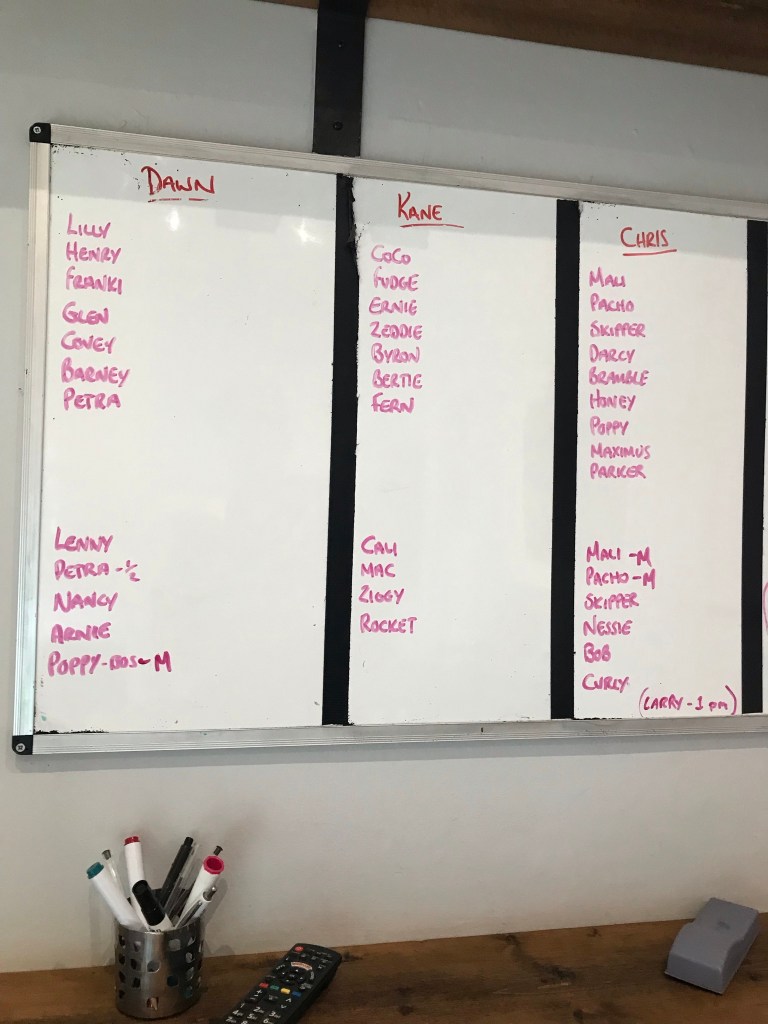 DAWN
LILLY
HENRY
FRANKI
GLEN
COVEY
BARNEY
PETRA
LENNY
PETRA - 1/2
NANCY
ARNIE
POPPY - M
KANE
COCO
FUDGE
ERNIE
ZEDDIE
BYRON
BERTIE
FERN
CALI
MAC
ZIGGY
ROCKET
CHRIS
MALI
PACHO
SKIPPER
DARCY
BRAMBLE
HONEY
POPPY
MAXIMUS
PARKER
MALI - M
PACHO - M
SKIPPER
NESSIE
BOB
CURLY
(LARRY - 1 pm)